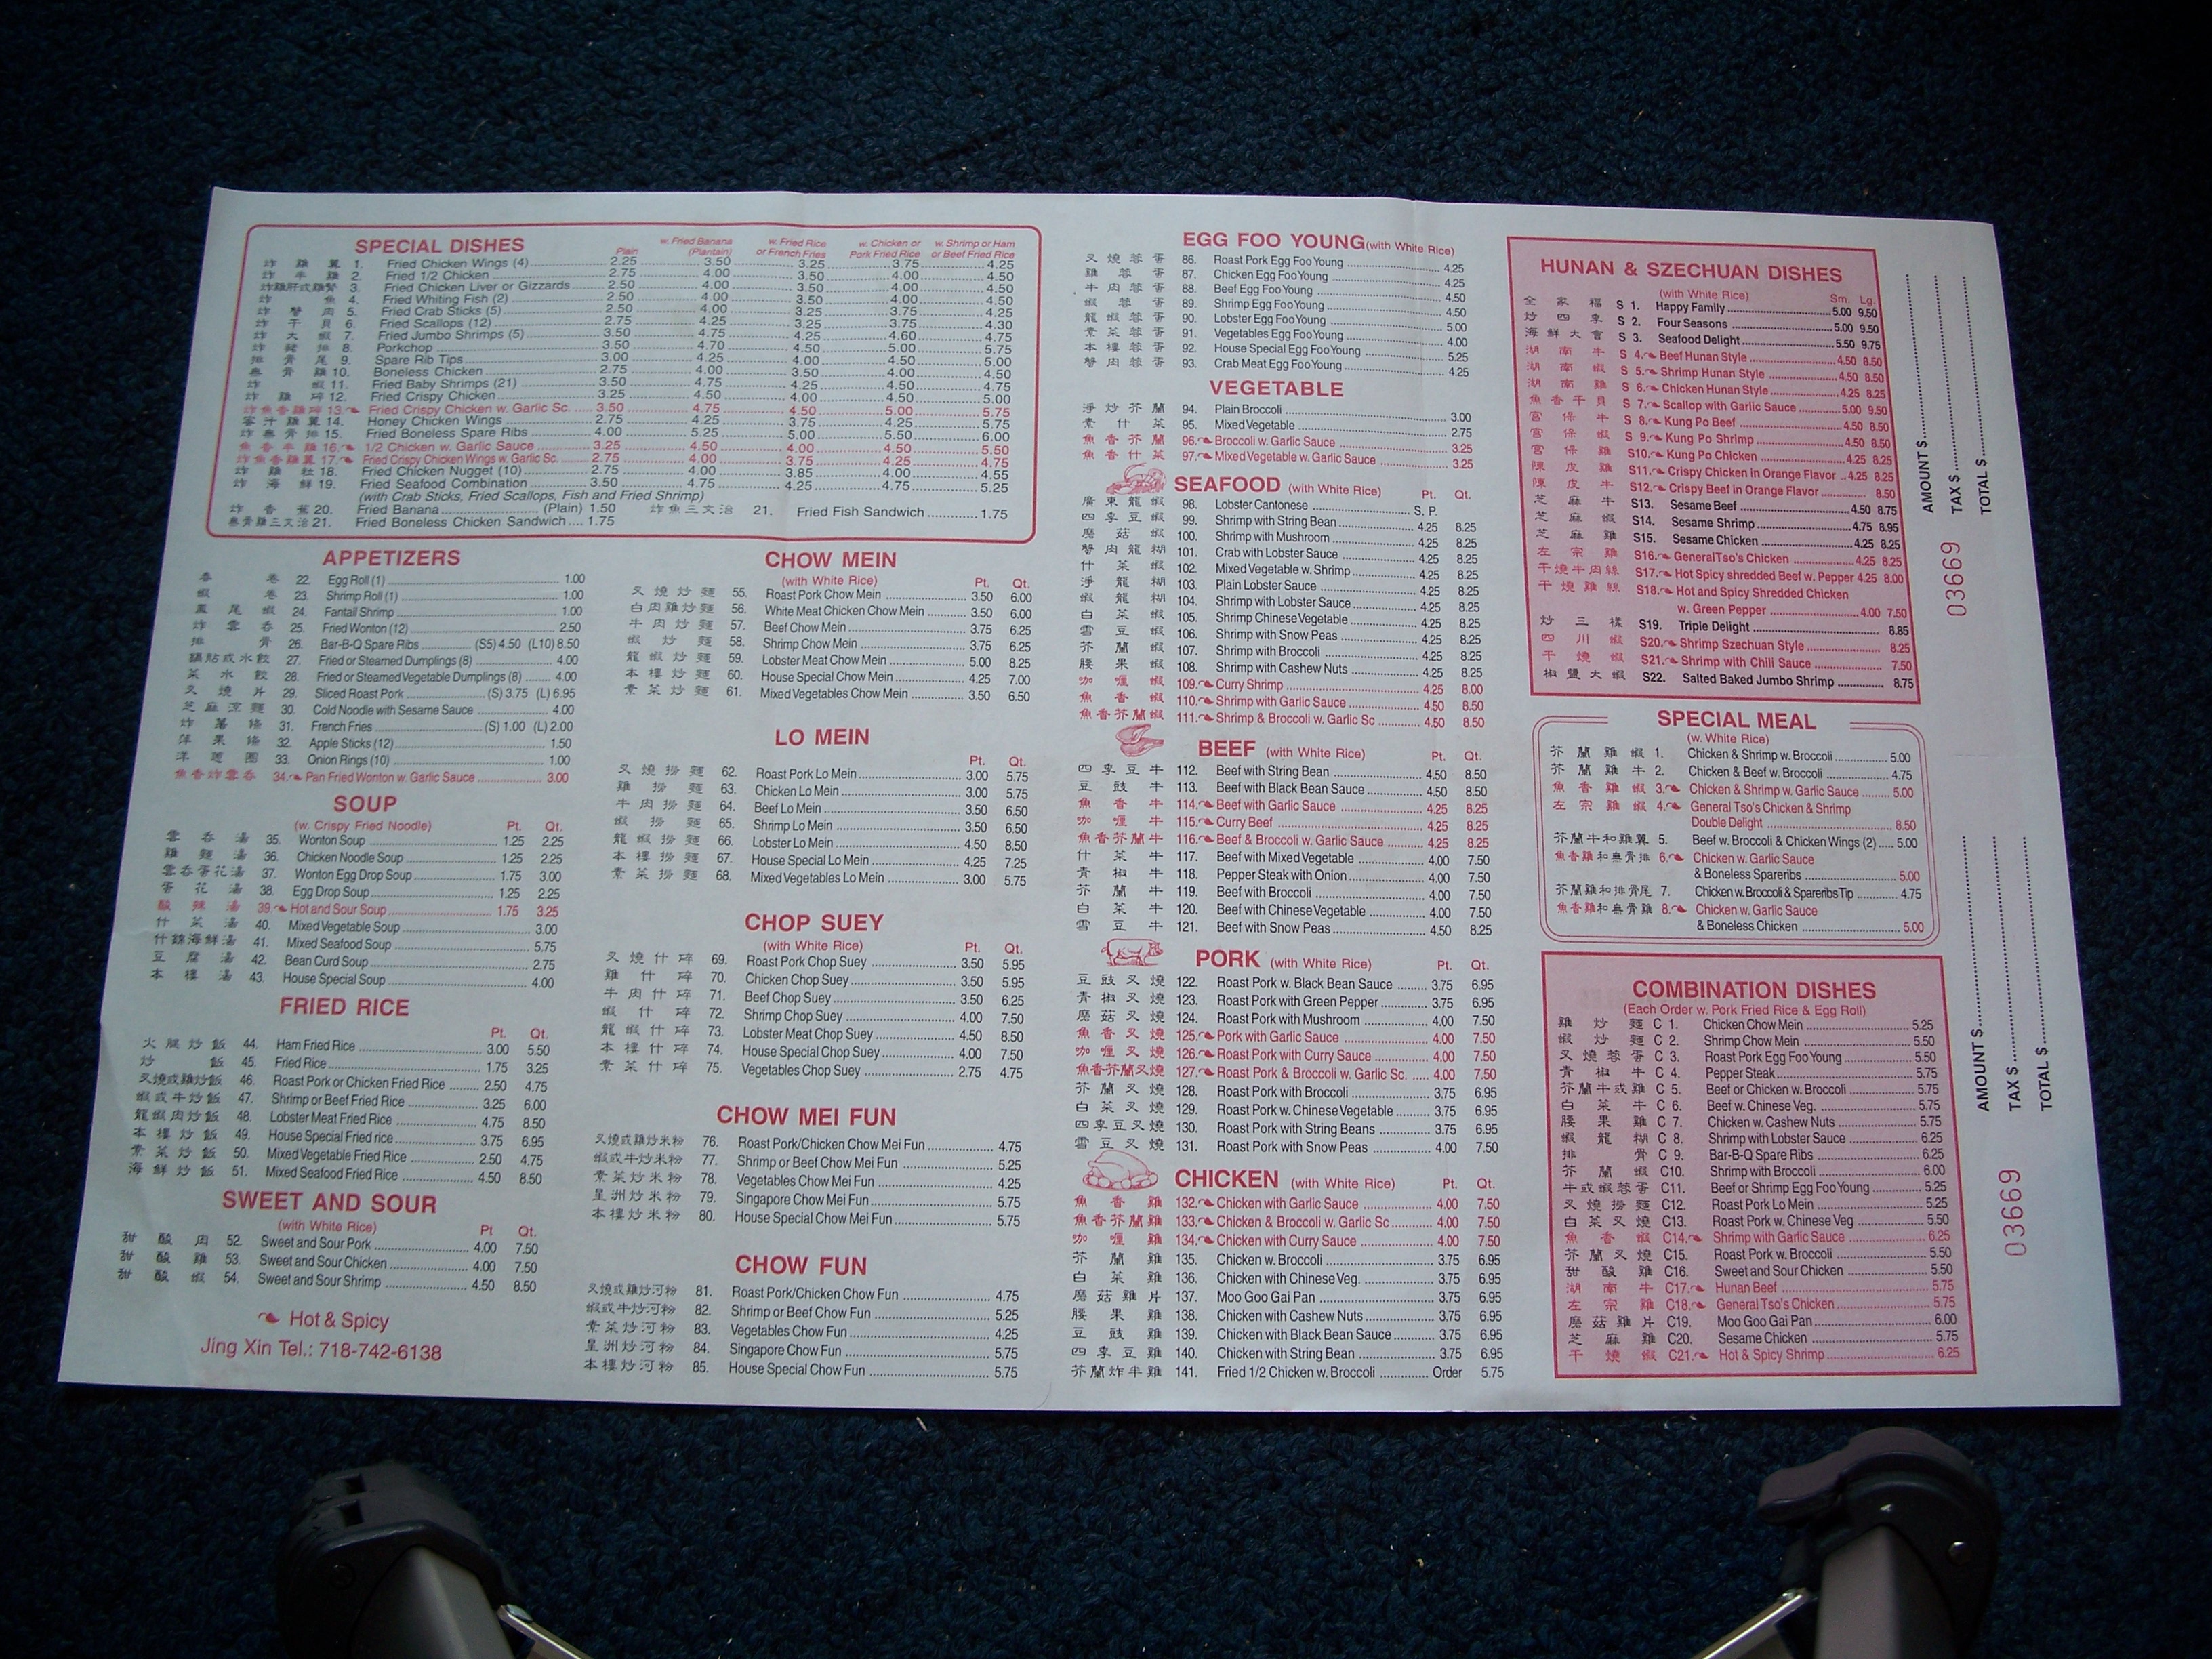 SPECIAL DISHES
Plain w. Fried Banana (Plantain) w. Fried Rice or French Fries w. Chicken or Pork Fried Rice w. Shrimp or Ham or Beef Fried Rice
炸雞翼 1. Fried Chicken Wings (4) 2.25 3.50 3.25 3.75 4.25
炸半雞 2. Fried 1/2 Chicken 2.75 4.00 3.50 4.00 4.50
炸雞肝或雞腎 3. Fried Chicken Liver or Gizzards 2.50 4.00 3.50 4.00 4.50
炸魚 4. Fried Whiting Fish (2) 2.50 4.00 3.50 4.00 4.50
炸蟹肉 5. Fried Crab Sticks (5) 2.50 4.00 3.25 3.75 4.25
炸干貝 6. Fried Scallops (12) 2.75 4.25 3.25 3.75 4.30
炸大蝦 7. Fried Jumbo Shrimps (5) 3.50 4.75 4.25 4.60 4.75
炸豬排 8. Porkchop 3.50 4.70 4.50 5.00 5.75
排骨尾 9. Spare Rib Tips 3.00 4.25 4.00 4.50 5.00
無骨雞 10. Boneless Chicken 2.75 4.00 3.50 4.00 4.50
炸蝦 11. Fried Baby Shrimps (21) 3.50 4.75 4.25 4.50 4.75
炸雞碎 12. Fried Crispy Chicken 3.25 4.50 4.00 4.50 5.00
炸魚香雞碎 13. Fried Crispy Chicken w. Garlic Sc. 3.50 4.75 4.50 5.00 5.75
蜜汁雞翼 14. Honey Chicken Wings 2.75 4.25 3.75 4.25 4.75
炸無骨排 15. Fried Boneless Spare Ribs 4.00 5.25 5.00 5.50 6.00
魚香半雞 16. 1/2 Chicken w. Garlic Sauce 3.25 4.50 4.00 4.50 5.50
炸魚香雞翼 17. Fried Crispy Chicken Wings w. Garlic Sc. 2.75 4.00 3.75 4.25 4.75
炸雞粒 18. Fried Chicken Nugget (10) 2.75 4.00 3.85 4.00 4.55
炸海鮮 19. Fried Seafood Combination 3.50 4.75 4.25 4.75 5.25
(with Crab Sticks, Fried Scallops, Fish and Fried Shrimp)
炸香蕉 20. Fried Banana (Plain) 1.50 炸魚三文治 21. Fried Fish Sandwich 1.75
無骨雞三文治 21. Fried Boneless Chicken Sandwich 1.75
APPETIZERS
春卷 22. Egg Roll (1) 1.00
蝦卷 23. Shrimp Roll (1) 1.00
鳳尾蝦 24. Fantail Shrimp 1.00
炸雲吞 25. Fried Wonton (12) 2.50
排骨 26. Bar-B-Q Spare Ribs (S5) 4.50 (L10) 8.50
鍋貼或水餃 27. Fried or Steamed Dumplings (8) 4.00
菜水餃 28. Fried or Steamed Vegetable Dumplings (8) 4.00
叉燒片 29. Sliced Roast Pork (S) 3.75 (L) 6.95
芝麻涼麵 30. Cold Noodle with Sesame Sauce 4.00
炸薯條 31. French Fries (S) 1.00 (L) 2.00
萍果條 32. Apple Sticks (12) 1.50
洋蔥圈 33. Onion Rings (10) 1.00
魚香炸雲吞 34. Pan Fried Wonton w. Garlic Sauce 3.00
SOUP
(w. Crispy Fried Noodle) Pt. Qt.
雲吞湯 35. Wonton Soup 1.25 2.25
雞麵湯 36. Chicken Noodle Soup 1.25 2.25
雲吞蛋花湯 37. Wonton Egg Drop Soup 1.75 3.00
蛋花湯 38. Egg Drop Soup 1.25 2.25
酸辣湯 39. Hot and Sour Soup 1.75 3.25
什菜湯 40. Mixed Vegetable Soup 3.00
什錦海鮮湯 41. Mixed Seafood Soup 5.75
豆腐湯 42. Bean Curd Soup 2.75
本樓湯 43. House Special Soup 4.00
FRIED RICE
Pt. Qt.
火腿炒飯 44. Ham Fried Rice 3.00 5.50
炒飯 45. Fried Rice 1.75 3.25
叉燒或雞炒飯 46. Roast Pork or Chicken Fried Rice 2.50 4.75
蝦或牛炒飯 47. Shrimp or Beef Fried Rice 3.25 6.00
龍蝦肉炒飯 48. Lobster Meat Fried Rice 4.75 8.50
本樓炒飯 49. House Special Fried rice 3.75 6.95
素菜炒飯 50. Mixed Vegetable Fried Rice 2.50 4.75
海鮮炒飯 51. Mixed Seafood Fried Rice 4.50 8.50
SWEET AND SOUR
(with White Rice) Pt Qt.
甜酸肉 52. Sweet and Sour Pork 4.00 7.50
甜酸雞 53. Sweet and Sour Chicken 4.00 7.50
甜酸蝦 54. Sweet and Sour Shrimp 4.50 8.50
Hot & Spicy
Jing Xin Tel.: 718-742-6138
CHOW MEIN
(with White Rice) Pt. Qt.
叉燒炒麵 55. Roast Pork Chow Mein 3.50 6.00
白肉雞炒麵 56. White Meat Chicken Chow Mein 3.50 6.00
牛肉炒麵 57. Beef Chow Mein 3.75 6.25
蝦炒麵 58. Shrimp Chow Mein 3.75 6.25
龍蝦炒麵 59. Lobster Meat Chow Mein 5.00 8.25
本樓炒麵 60. House Special Chow Mein 4.25 7.00
素菜炒麵 61. Mixed Vegetables Chow Mein 3.50 6.50
LO MEIN
Pt. Qt.
叉燒撈麵 62. Roast Pork Lo Mein 3.00 5.75
雞撈麵 63. Chicken Lo Mein 3.00 5.75
牛肉撈麵 64. Beef Lo Mein 3.50 6.50
蝦撈麵 65. Shrimp Lo Mein 3.50 6.50
龍蝦撈麵 66. Lobster Lo Mein 4.50 8.50
本樓撈麵 67. House Special Lo Mein 4.25 7.25
素菜撈麵 68. Mixed Vegetables Lo Mein 3.00 5.75
CHOP SUEY
(with White Rice) Pt. Qt.
叉燒什碎 69. Roast Pork Chop Suey 3.50 5.95
雞什碎 70. Chicken Chop Suey 3.50 5.95
牛肉什碎 71. Beef Chop Suey 3.50 6.25
蝦什碎 72. Shrimp Chop Suey 4.00 7.50
龍蝦什碎 73. Lobster Meat Chop Suey 4.50 8.50
本樓什碎 74. House Special Chop Suey 4.00 7.50
素菜什碎 75. Vegetables Chop Suey 2.75 4.75
CHOW MEI FUN
叉燒或雞炒米粉 76. Roast Pork/Chicken Chow Mei Fun 4.75
蝦或牛炒米粉 77. Shrimp or Beef Chow Mei Fun 5.25
素菜炒米粉 78. Vegetables Chow Mei Fun 4.25
星洲炒米粉 79. Singapore Chow Mei Fun 5.75
本樓炒米粉 80. House Special Chow Mei Fun 5.75
CHOW FUN
叉燒或雞炒河粉 81. Roast Pork/Chicken Chow Fun 4.75
蝦或牛炒河粉 82. Shrimp or Beef Chow Fun 5.25
素菜炒河粉 83. Vegetables Chow Fun 4.25
星洲炒河粉 84. Singapore Chow Fun 5.75
本樓炒河粉 85. House Special Chow Fun 5.75
EGG FOO YOUNG (with White Rice)
叉燒蓉蛋 86. Roast Pork Egg Foo Young 4.25
雞蓉蛋 87. Chicken Egg Foo Young 4.25
牛肉蓉蛋 88. Beef Egg Foo Young 4.50
蝦蓉蛋 89. Shrimp Egg Foo Young 4.50
龍蝦蓉蛋 90. Lobster Egg Foo Young 5.00
素菜蓉蛋 91. Vegetables Egg Foo Young 4.00
本樓蓉蛋 92. House Special Egg Foo Young 5.25
蟹肉蓉蛋 93. Crab Meat Egg Foo Young 4.25
VEGETABLE
淨炒芥蘭 94. Plain Broccoli 3.00
素什菜 95. Mixed Vegetable 2.75
魚香芥蘭 96. Broccoli w. Garlic Sauce 3.25
魚香什菜 97. Mixed Vegetable w. Garlic Sauce 3.25
SEAFOOD (with White Rice) Pt. Qt.
廣東龍蝦 98. Lobster Cantonese S. P.
四季豆蝦 99. Shrimp with String Bean 4.25 8.25
磨菇蝦 100. Shrimp with Mushroom 4.25 8.25
蟹肉龍糊 101. Crab with Lobster Sauce 4.25 8.25
什菜蝦 102. Mixed Vegetable w. Shrimp 4.25 8.25
淨龍糊 103. Plain Lobster Sauce 4.25 8.25
蝦龍糊 104. Shrimp with Lobster Sauce 4.25 8.25
白菜蝦 105. Shrimp Chinese Vegetable 4.25 8.25
雪豆蝦 106. Shrimp with Snow Peas 4.25 8.25
芥蘭蝦 107. Shrimp with Broccoli 4.25 8.25
腰果蝦 108. Shrimp with Cashew Nuts 4.25 8.25
咖喱蝦 109. Curry Shrimp 4.25 8.00
魚香蝦 110. Shrimp with Garlic Sauce 4.50 8.50
魚香芥蘭蝦 111. Shrimp & Broccoli w. Garlic Sc 4.50 8.50
BEEF (with White Rice) Pt. Qt.
四季豆牛 112. Beef with String Bean 4.50 8.50
豆豉牛 113. Beef with Black Bean Sauce 4.50 8.50
魚香牛 114. Beef with Garlic Sauce 4.25 8.25
咖喱牛 115. Curry Beef 4.25 8.25
魚香芥蘭牛 116. Beef & Broccoli w. Garlic Sauce 4.25 8.25
什菜牛 117. Beef with Mixed Vegetable 4.00 7.50
青椒牛 118. Pepper Steak with Onion 4.00 7.50
芥蘭牛 119. Beef with Broccoli 4.00 7.50
白菜牛 120. Beef with Chinese Vegetable 4.00 7.50
雪豆牛 121. Beef with Snow Peas 4.50 8.25
PORK (with White Rice) Pt. Qt.
豆豉叉燒 122. Roast Pork w. Black Bean Sauce 3.75 6.95
青椒叉燒 123. Roast Pork with Green Pepper 3.75 6.95
磨菇叉燒 124. Roast Pork with Mushroom 4.00 7.50
魚香叉燒 125. Pork with Garlic Sauce 4.00 7.50
咖喱叉燒 126. Roast Pork with Curry Sauce 4.00 7.50
魚香芥蘭叉燒 127. Roast Pork & Broccoli w. Garlic Sc. 4.00 7.50
芥蘭叉燒 128. Roast Pork with Broccoli 3.75 6.95
白菜叉燒 129. Roast Pork w. Chinese Vegetable 3.75 6.95
四季豆叉燒 130. Roast Pork with String Beans 3.75 6.95
雪豆叉燒 131. Roast Pork with Snow Peas 4.00 7.50
CHICKEN (with White Rice) Pt. Qt.
魚香雞 132. Chicken with Garlic Sauce 4.00 7.50
魚香芥蘭雞 133. Chicken & Broccoli w. Garlic Sc 4.00 7.50
咖喱雞 134. Chicken with Curry Sauce 4.00 7.50
芥蘭雞 135. Chicken w. Broccoli 3.75 6.95
白菜雞 136. Chicken with Chinese Veg. 3.75 6.95
磨菇雞片 137. Moo Goo Gai Pan 3.75 6.95
腰果雞 138. Chicken with Cashew Nuts 3.75 6.95
豆豉雞 139. Chicken with Black Bean Sauce 3.75 6.95
四季豆雞 140. Chicken with String Bean 3.75 6.95
芥蘭炸半雞 141. Fried 1/2 Chicken w. Broccoli Order 5.75
HUNAN & SZECHUAN DISHES
(with White Rice) Sm. Lg.
全家福 S 1. Happy Family 5.00 9.50
炒四季 S 2. Four Seasons 5.00 9.50
海鮮大會 S 3. Seafood Delight 5.50 9.75
湖南牛 S 4. Beef Hunan Style 4.50 8.50
湖南蝦 S 5. Shrimp Hunan Style 4.50 8.50
湖南雞 S 6. Chicken Hunan Style 4.25 8.25
魚香干貝 S 7. Scallop with Garlic Sauce 5.00 9.50
宮保牛 S 8. Kung Po Beef 4.50 8.50
宮保蝦 S 9. Kung Po Shrimp 4.50 8.50
宮保雞 S10. Kung Po Chicken 4.25 8.25
陳皮雞 S11. Crispy Chicken in Orange Flavor 4.25 8.25
陳皮牛 S12. Crispy Beef in Orange Flavor 8.50
芝麻牛 S13. Sesame Beef 4.50 8.75
芝麻蝦 S14. Sesame Shrimp 4.75 8.95
芝麻雞 S15. Sesame Chicken 4.25 8.25
左宗雞 S16. General Tso's Chicken 4.25 8.25
干燒牛肉絲 S17. Hot Spicy shredded Beef w. Pepper 4.25 8.00
干燒雞絲 S18. Hot and Spicy Shredded Chicken
w. Green Pepper 4.00 7.50
炒三樣 S19. Triple Delight 8.85
四川蝦 S20. Shrimp Szechuan Style 8.25
干燒蝦 S21. Shrimp with Chili Sauce 7.50
椒鹽大蝦 S22. Salted Baked Jumbo Shrimp 8.75
SPECIAL MEAL
(w. White Rice)
芥蘭雞蝦 1. Chicken & Shrimp w. Broccoli 5.00
芥蘭雞牛 2. Chicken & Beef w. Broccoli 4.75
魚香雞蝦 3. Chicken & Shrimp w. Garlic Sauce 5.00
左宗雞蝦 4. General Tso's Chicken & Shrimp
Double Delight 8.50
芥蘭牛和雞翼 5. Beef w. Broccoli & Chicken Wings (2) 5.00
魚香雞和無骨排 6. Chicken w. Garlic Sauce
& Boneless Spareribs 5.00
芥蘭雞和排骨尾 7. Chicken w. Broccoli & Spareribs Tip 4.75
魚香雞和無骨雞 8. Chicken w. Garlic Sauce
& Boneless Chicken 5.00
COMBINATION DISHES
(Each Order w. Pork Fried Rice & Egg Roll)
雞炒麵 C 1. Chicken Chow Mein 5.25
蝦炒麵 C 2. Shrimp Chow Mein 5.50
叉燒蓉蛋 C 3. Roast Pork Egg Foo Young 5.50
青椒牛 C 4. Pepper Steak 5.75
芥蘭牛或雞 C 5. Beef or Chicken w. Broccoli 5.75
白菜牛 C 6. Beef w. Chinese Veg. 5.75
腰果雞 C 7. Chicken w. Cashew Nuts 5.75
蝦龍糊 C 8. Shrimp with Lobster Sauce 6.25
排骨 C 9. Bar-B-Q Spare Ribs 6.25
芥蘭蝦 C10. Shrimp with Broccoli 6.00
牛或蝦蓉蛋 C11. Beef or Shrimp Egg Foo Young 5.25
叉燒撈麵 C12. Roast Pork Lo Mein 5.25
白菜叉燒 C13. Roast Pork w. Chinese Veg 5.50
魚香蝦 C14. Shrimp with Garlic Sauce 6.25
芥蘭叉燒 C15. Roast Pork w. Broccoli 5.50
甜酸雞 C16. Sweet and Sour Chicken 5.50
湖南牛 C17. Hunan Beef 5.75
左宗雞 C18. General Tso's Chicken 5.75
磨菇雞片 C19. Moo Goo Gai Pan 6.00
芝麻雞 C20. Sesame Chicken 5.75
干燒蝦 C21. Hot & Spicy Shrimp 6.25
AMOUNT $
TAX $
TOTAL $
03669
AMOUNT $
TAX $
TOTAL $
03669